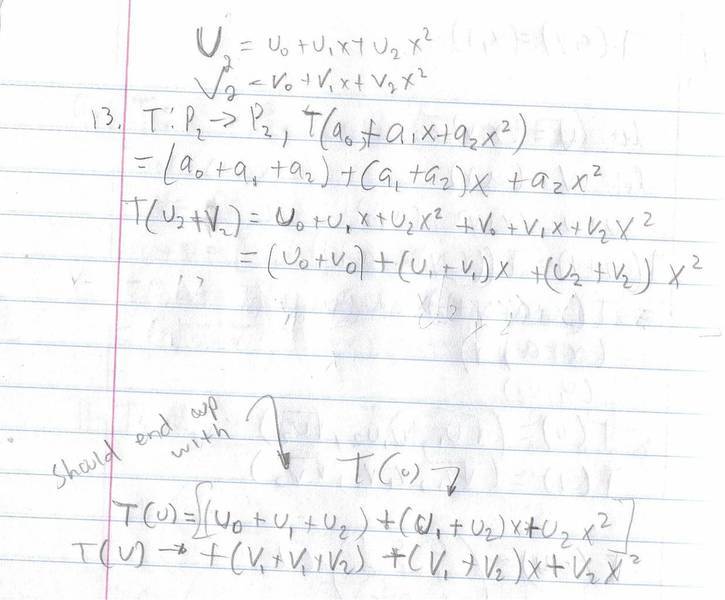 U₂ = u₀ + u₁x + u₂x²
V₂ = v₀ + v₁x + v₂x²
13. T: P₂ → P₂, T(a₀ + a₁x + a₂x²)
= (a₀ + a₁ + a₂) + (a₁ + a₂)x + a₂x²
T(U₂ + V₂) = u₀ + u₁x + u₂x² + v₀ + v₁x + v₂x²
= (u₀ + v₀) + (u₁ + v₁)x + (u₂ + v₂) x²
should end up
with
T(u)
T(u) = [(u₀ + u₁ + u₂) + (u₁ + u₂)x + u₂x²]
T(v) → + (v₁ + v₁ + v₂) + (v₁ + v₂)x + v₂x²